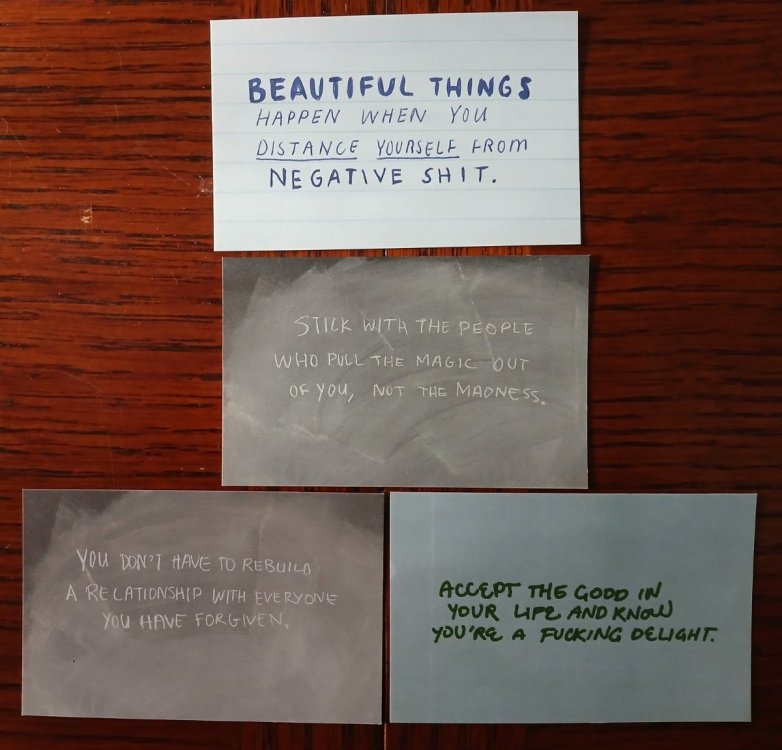 BEAUTIFUL THINGS
HAPPEN WHEN YOU
DISTANCE YOURSELF FROM
NEGATIVE SHIT.
STICK WITH THE PEOPLE
WHO PULL THE MAGIC OUT
OF YOU, NOT THE MADNESS.
YOU DON'T HAVE TO REBUILD
A RELATIONSHIP WITH EVERYONE
YOU HAVE FORGIVEN.
ACCEPT THE GOOD IN
YOUR LIFE AND KNOW
YOU'RE A FUCKING DELIGHT.